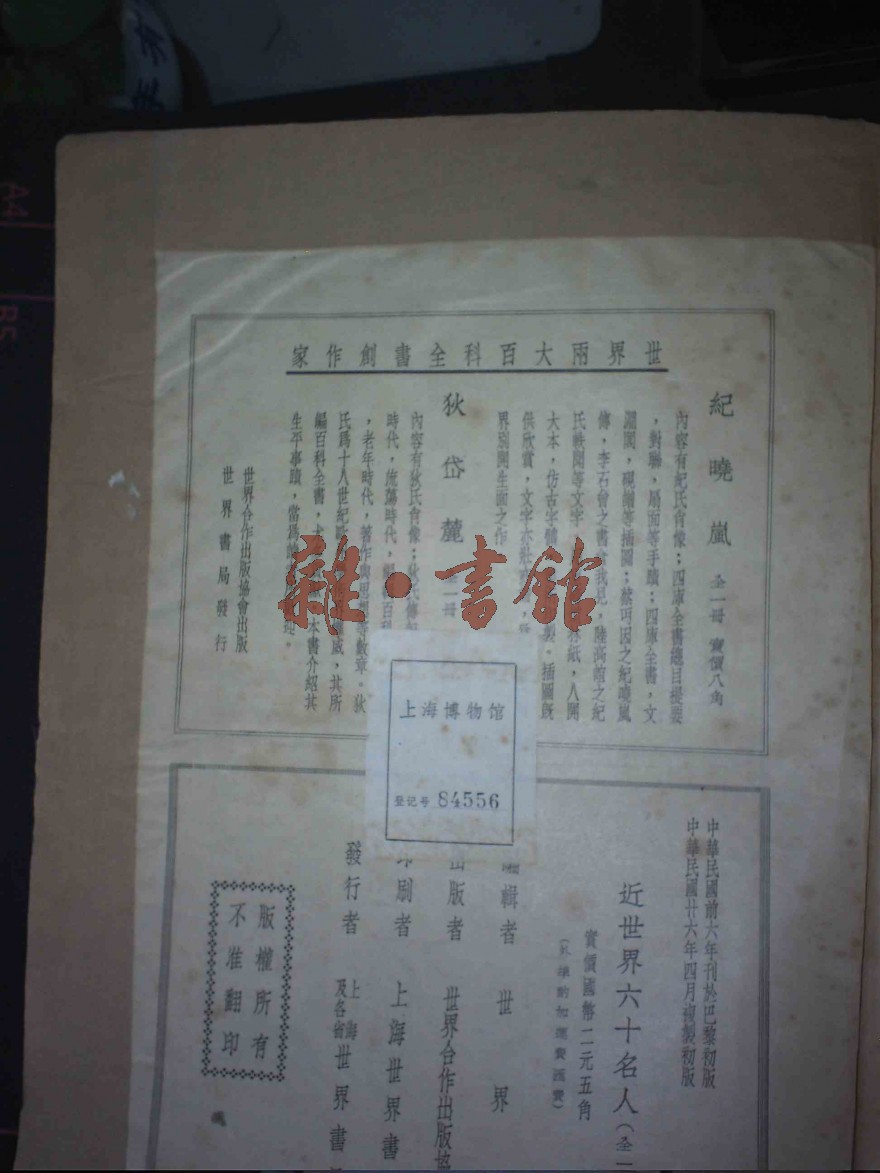 世界兩大百科全書創作家
紀曉嵐 全一冊 實價八角
內容有紀氏肖像；四庫全書總目提要
，對聯，扇面等手蹟；四庫全書，文
淵閣，硯銘等插圖；蔡元培之紀曉嵐
傳，李石曾之書
陸高誼之紀
氏軼聞等文字
紙，八開
大本，仿古字
插圖既
供欣賞，文字亦
界別開生面之作
狄岱麓 全一冊
內容有狄氏肖像；狄氏傳
時代，流蕩時代，
百科
，老年時代，著作與思想等數章。狄
氏爲十八世紀
威，其所
編百科全書，
本書介紹其
生平事蹟，當爲
世界合作出版協會出版
世界書局發行
雜·書館
上海博物馆
登记号 84556
中華民國前六年刊於巴黎初版
中華民國廿六年四月複製初版
近世界六十名人（全一
實價國幣二元五角
（外埠酌加運費匯費）
編輯者 世界
出版者 世界合作出版協
印刷者 上海世界書
發行者 上海及各省世界書
版權所有
不准翻印
A4
B5